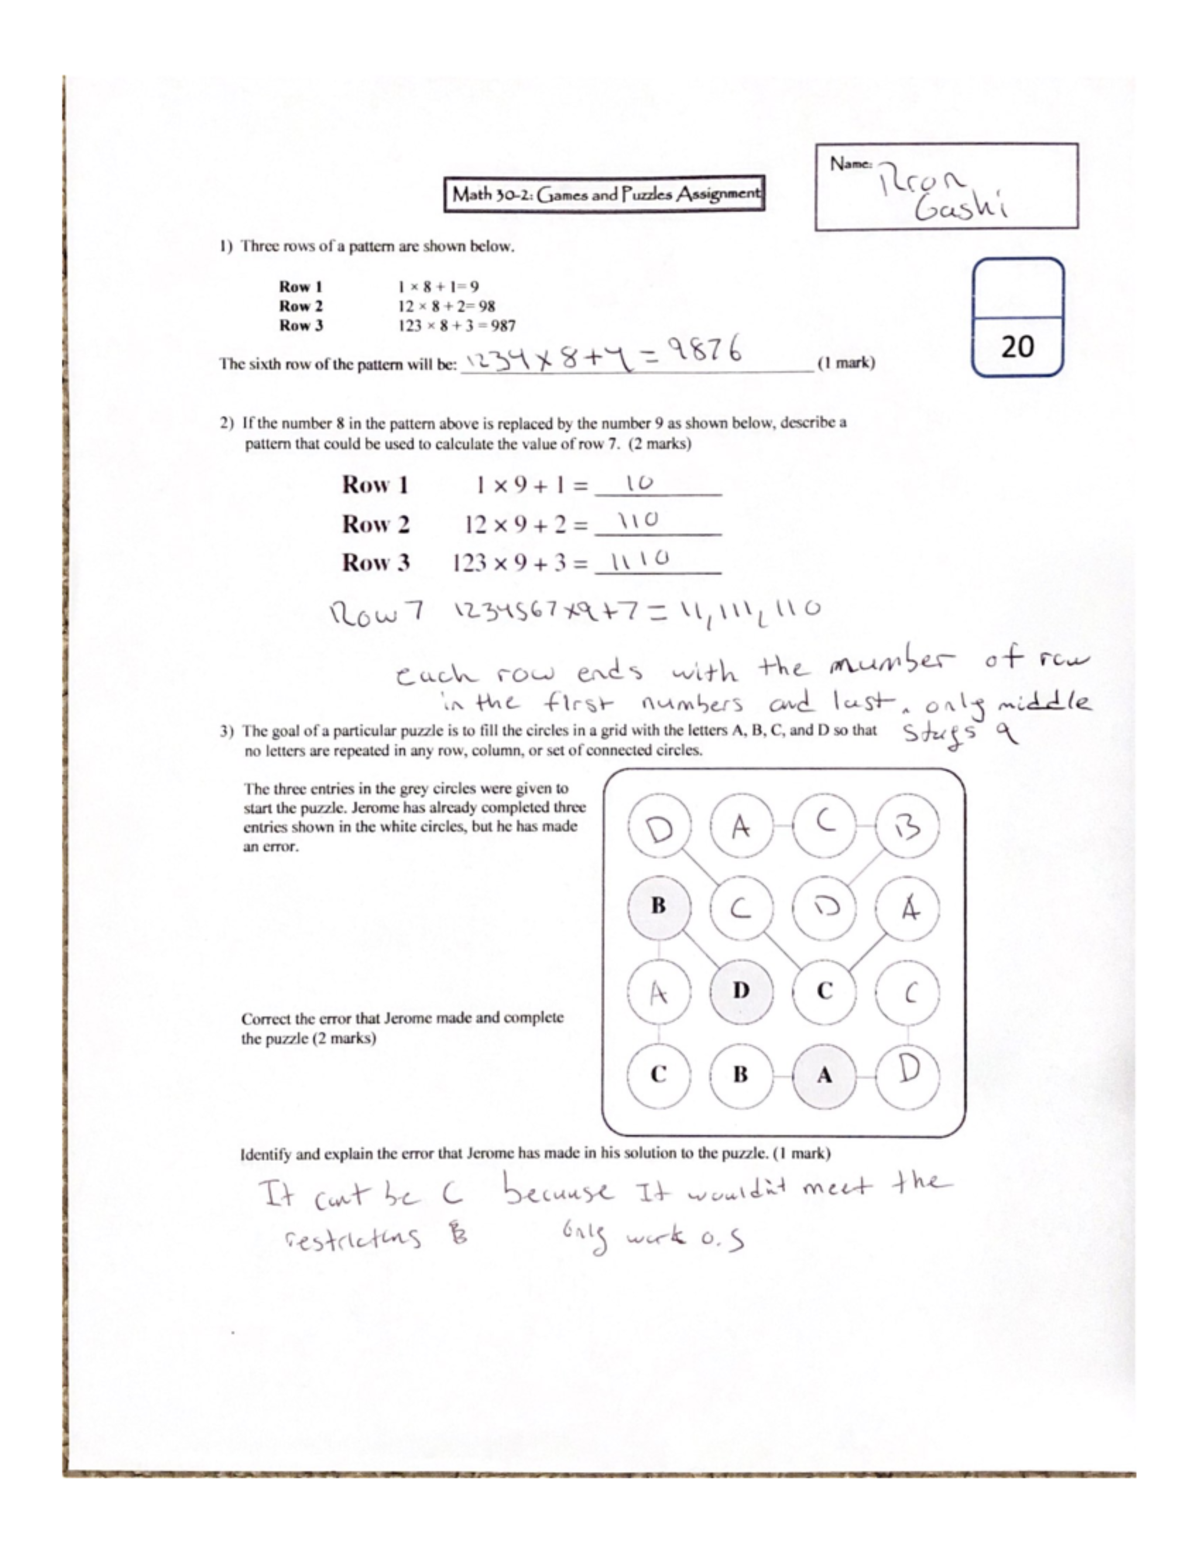 Name: Rron
Gashi
Math 30-2: Games and Puzzles Assignment
1) Three rows of a pattern are shown below.
Row 1 1 × 8 + 1= 9
Row 2 12 × 8 + 2= 98
Row 3 123 × 8 + 3 = 987
20
The sixth row of the pattern will be: 1234 x 8 + 4 = 9876 (1 mark)
2) If the number 8 in the pattern above is replaced by the number 9 as shown below, describe a
pattern that could be used to calculate the value of row 7. (2 marks)
Row 1 1 × 9 + 1 = 10
Row 2 12 × 9 + 2 = 110
Row 3 123 × 9 + 3 = 1110
Row 7 1234567 x 9 + 7 = 11,111,110
each row ends with the number of row
in the first numbers and last, only middle
stays 9
3) The goal of a particular puzzle is to fill the circles in a grid with the letters A, B, C, and D so that
no letters are repeated in any row, column, or set of connected circles.
The three entries in the grey circles were given to
start the puzzle. Jerome has already completed three
entries shown in the white circles, but he has made
an error.
D A C B
B C D A
A D C C
C B A D
Correct the error that Jerome made and complete
the puzzle (2 marks)
Identify and explain the error that Jerome has made in his solution to the puzzle. (1 mark)
It cant be C because It wouldnt meet the
restrictins B only work